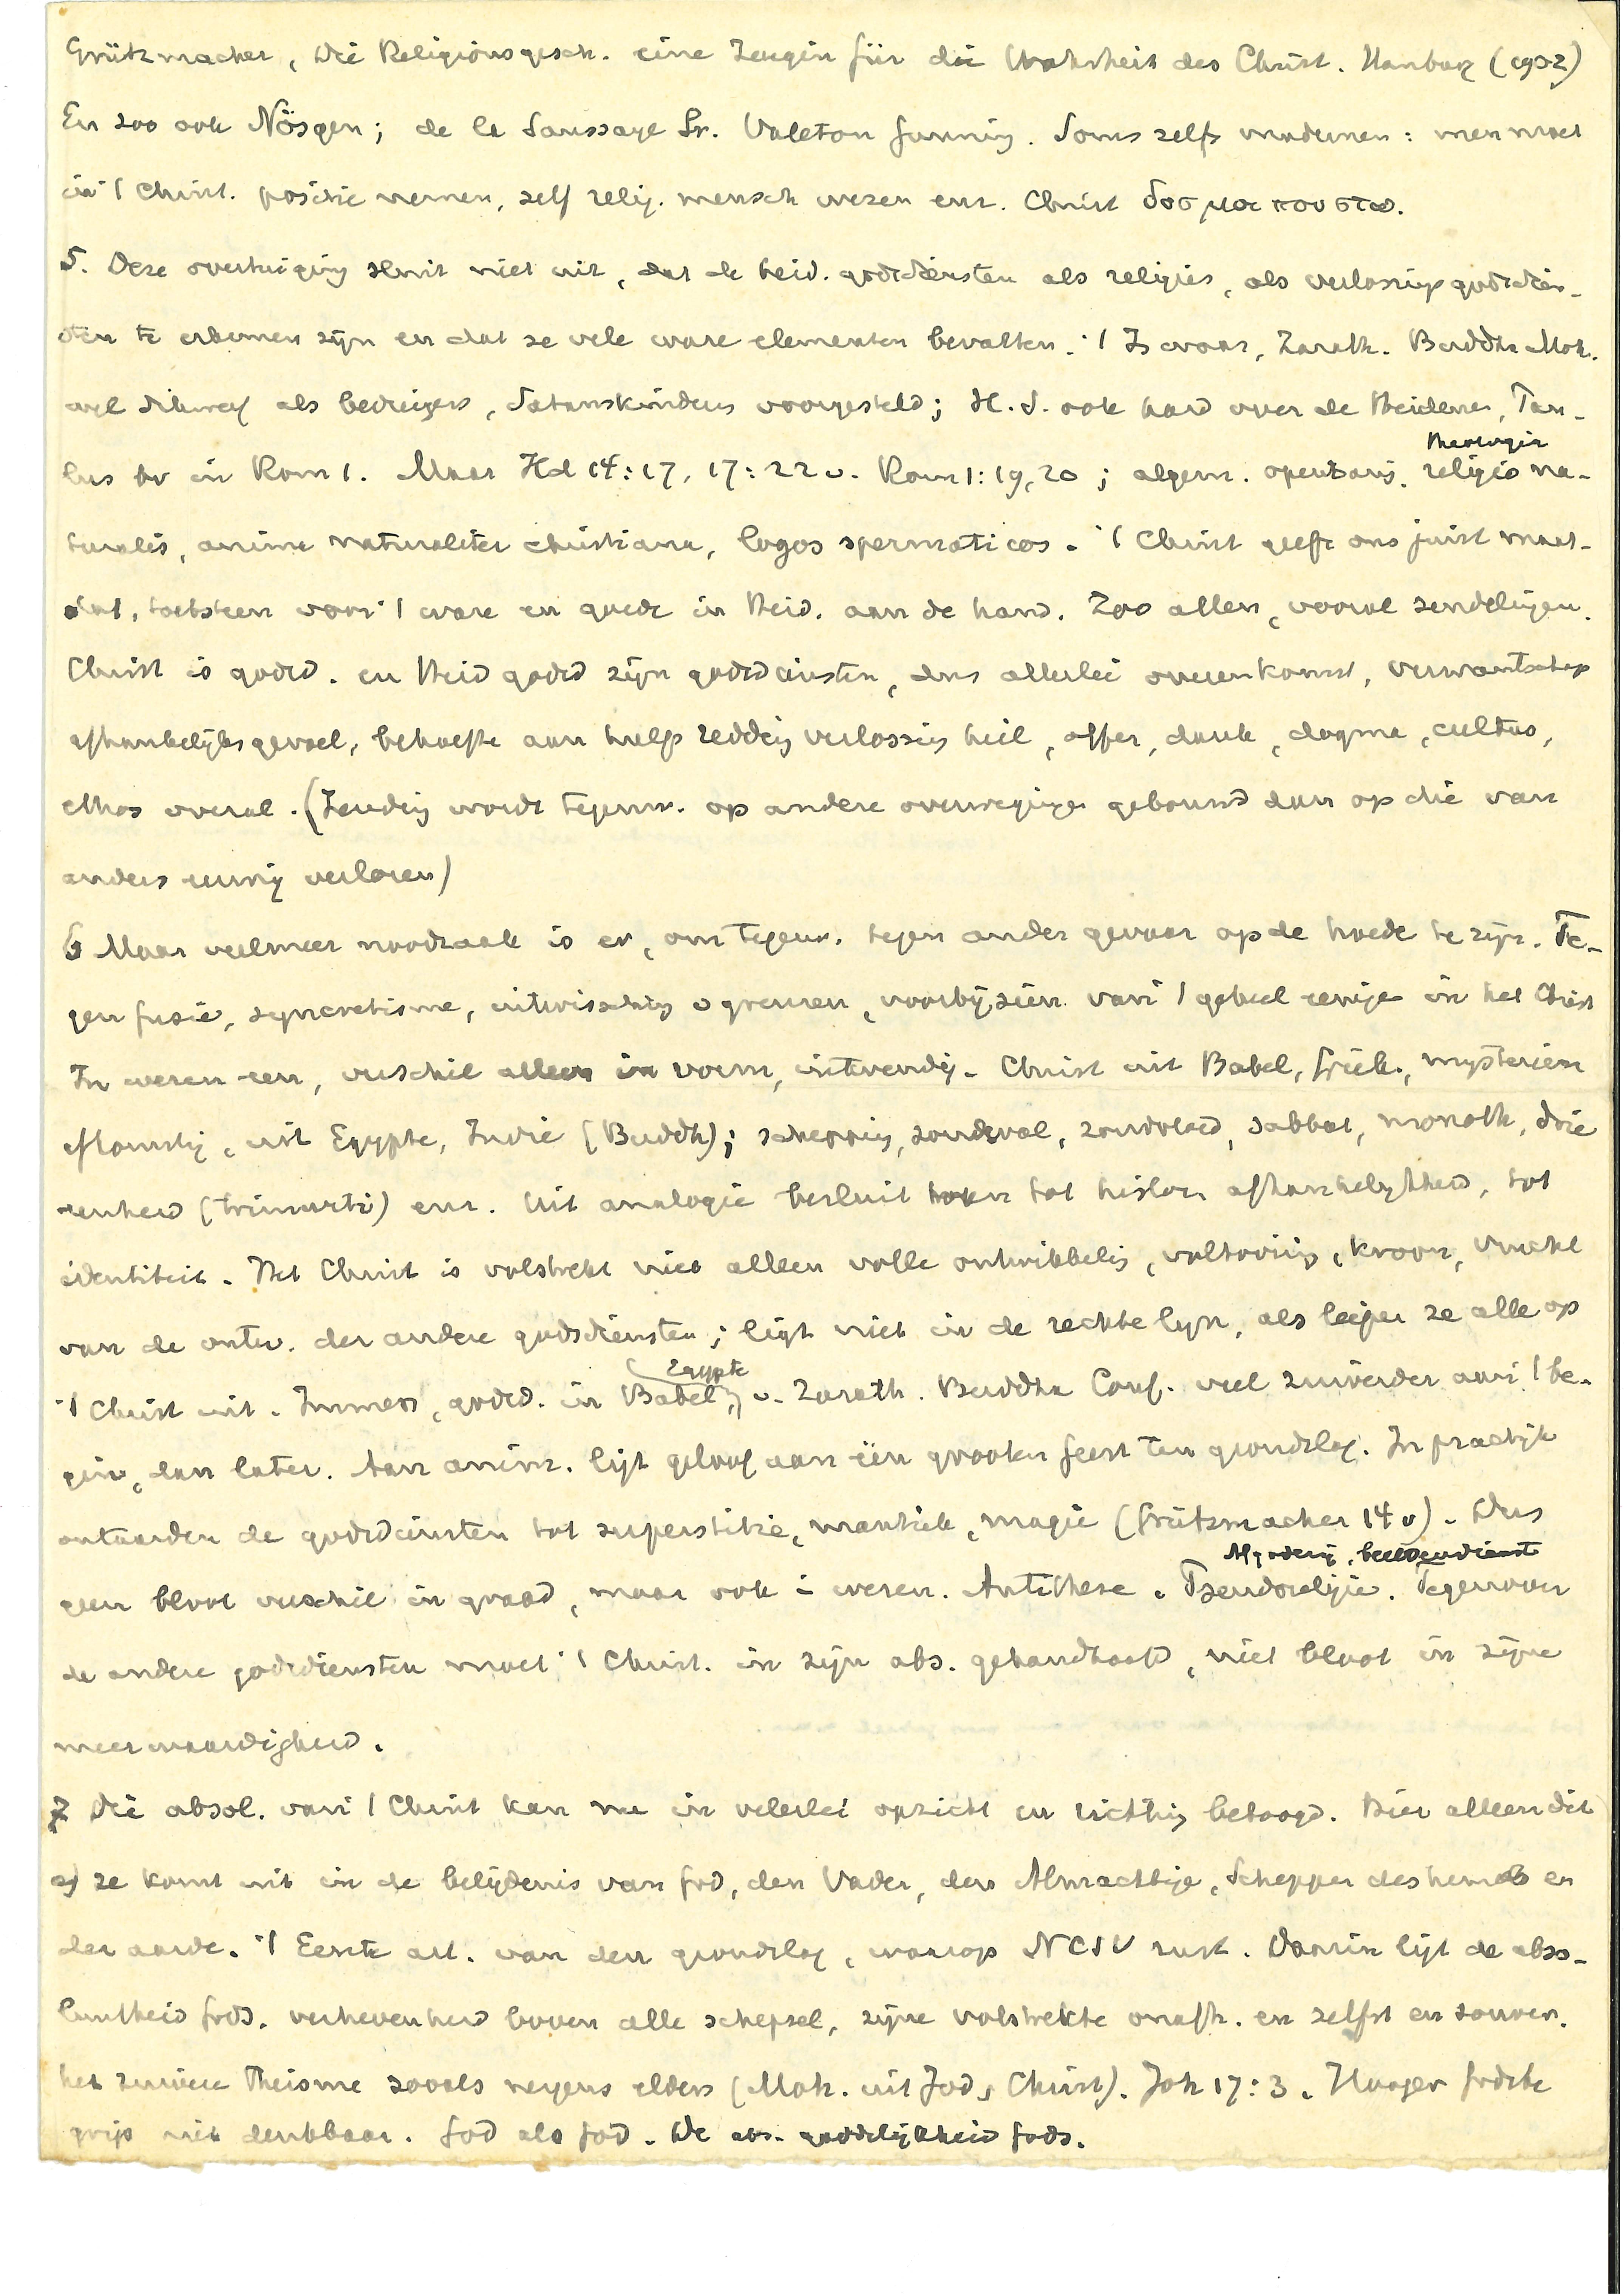 Grützmacher, Die Religionsgesch. eine Zeugin für die Wahrheit des Christ. Hamburg (1902)
En zoo ook Nösgen; de la Saussaye Sr. Valeton Gunning. Soms zelfs modernen: men moet
in 't Christ. positie nemen, self relig. mensch wezen enz. Christ δοσ μοι που στω.
5. Deze overtuiging sluit niet uit, dat de heid. godsdiensten als religies, als verlossingsgodsdien-
sten te erkennen zijn en dat ze vele ware elementen bevatten. 't Is waar, Zarath. Buddha Moh.
wel dikwerf als bedriegers, Satanskinderen voorgesteld; H.S. ook hard over de Heidenen, Pau-
lus bv in Rom 1. Maar Hd 14:17, 17:22 v. Rom 1:19, 20; algem. openbaring. religio na-
theologia
turalis, anima naturaliter christiana, logos spermaticos. 't Christ geeft ons juist maat-
staf, toetsteen voor 't ware en goede in Heid. aan de hand. Zoo allen, vooral zendelingen.
Christ is godsd. en Heid godsd zijn godsdiensten, dus allerlei overeenkomst, verwantschap
afhankelijksgevoel, behoefte aan hulp redding verlossing heil, offer, dank, dogma, cultus,
ethos overal. (Zending wordt tegenw. op andere overwegingen gebouwd dan op die van
anders eeuwig verloren)
6 Maar veelmeer noodzaak is er, om tegenw. tegen ander gevaar op de hoede te zijn. Te-
gen fusie, syncretisme, uitwissching v grenzen, voorbijzien van 't geheel eenige in het Christ
In wezen een, verschil alleen in vorm, uitwendig. Christ uit Babel, Griek., mysteriën
afkomstig, uit Egypte, Indië (Buddh); schepping, zondeval, zondvloed, sabbat, monoth, drie
eenheid (trimurti) enz. Uit analogie besluit men tot histor. afhankelijkheid, tot
identiteit. Het Christ is volstrekt niet alleen volle ontwikkeling, voltooiing, kroon, vrucht
van de ontw. der andere godsdiensten; ligt niet in de rechte lijn, als liepen ze alle op
't Christ uit. Immers, godsd. in Babel, Egypte v. Zarath. Buddha Conf. veel zuiverder aan 't be-
gin, dan later. Aan anim. ligt geloof aan één grooten geest ten grondslag. In praktijk
ontaarden de godsdiensten tot superstitie, mantiek, magie (Grützmacher 14 v). Dus
geen bloot verschil in graad, maar ook in wezen. Antithese. Pseudoreligie. Afgoderij, beeldendienst Tegenover
de andere godsdiensten moet 't Christ. in zijn abs. gehandhaafd, niet bloot in zijne
meerwaardigheid.
7 Die absol. van 't Christ kan nu in velerlei opzicht en richting betoogd. Hier alleen dit
a) ze komt uit in de belijdenis van God, den Vader, den Almachtige, Schepper des hemels en
der aarde. 't Eerste art. van den grondslag, waarop NCSV rust. Daarin ligt de abso-
luutheid Gods. verhevenheid boven alle schepsel, zijne volstrekte onafh. en zelfst en souver.
het zuivere Theisme zooals nergens elders (Moh. uit Jod, Christ). Joh 17:3. Hooger Godsbe
grip niet denkbaar. God als God. De abs. goddelijkheid Gods.